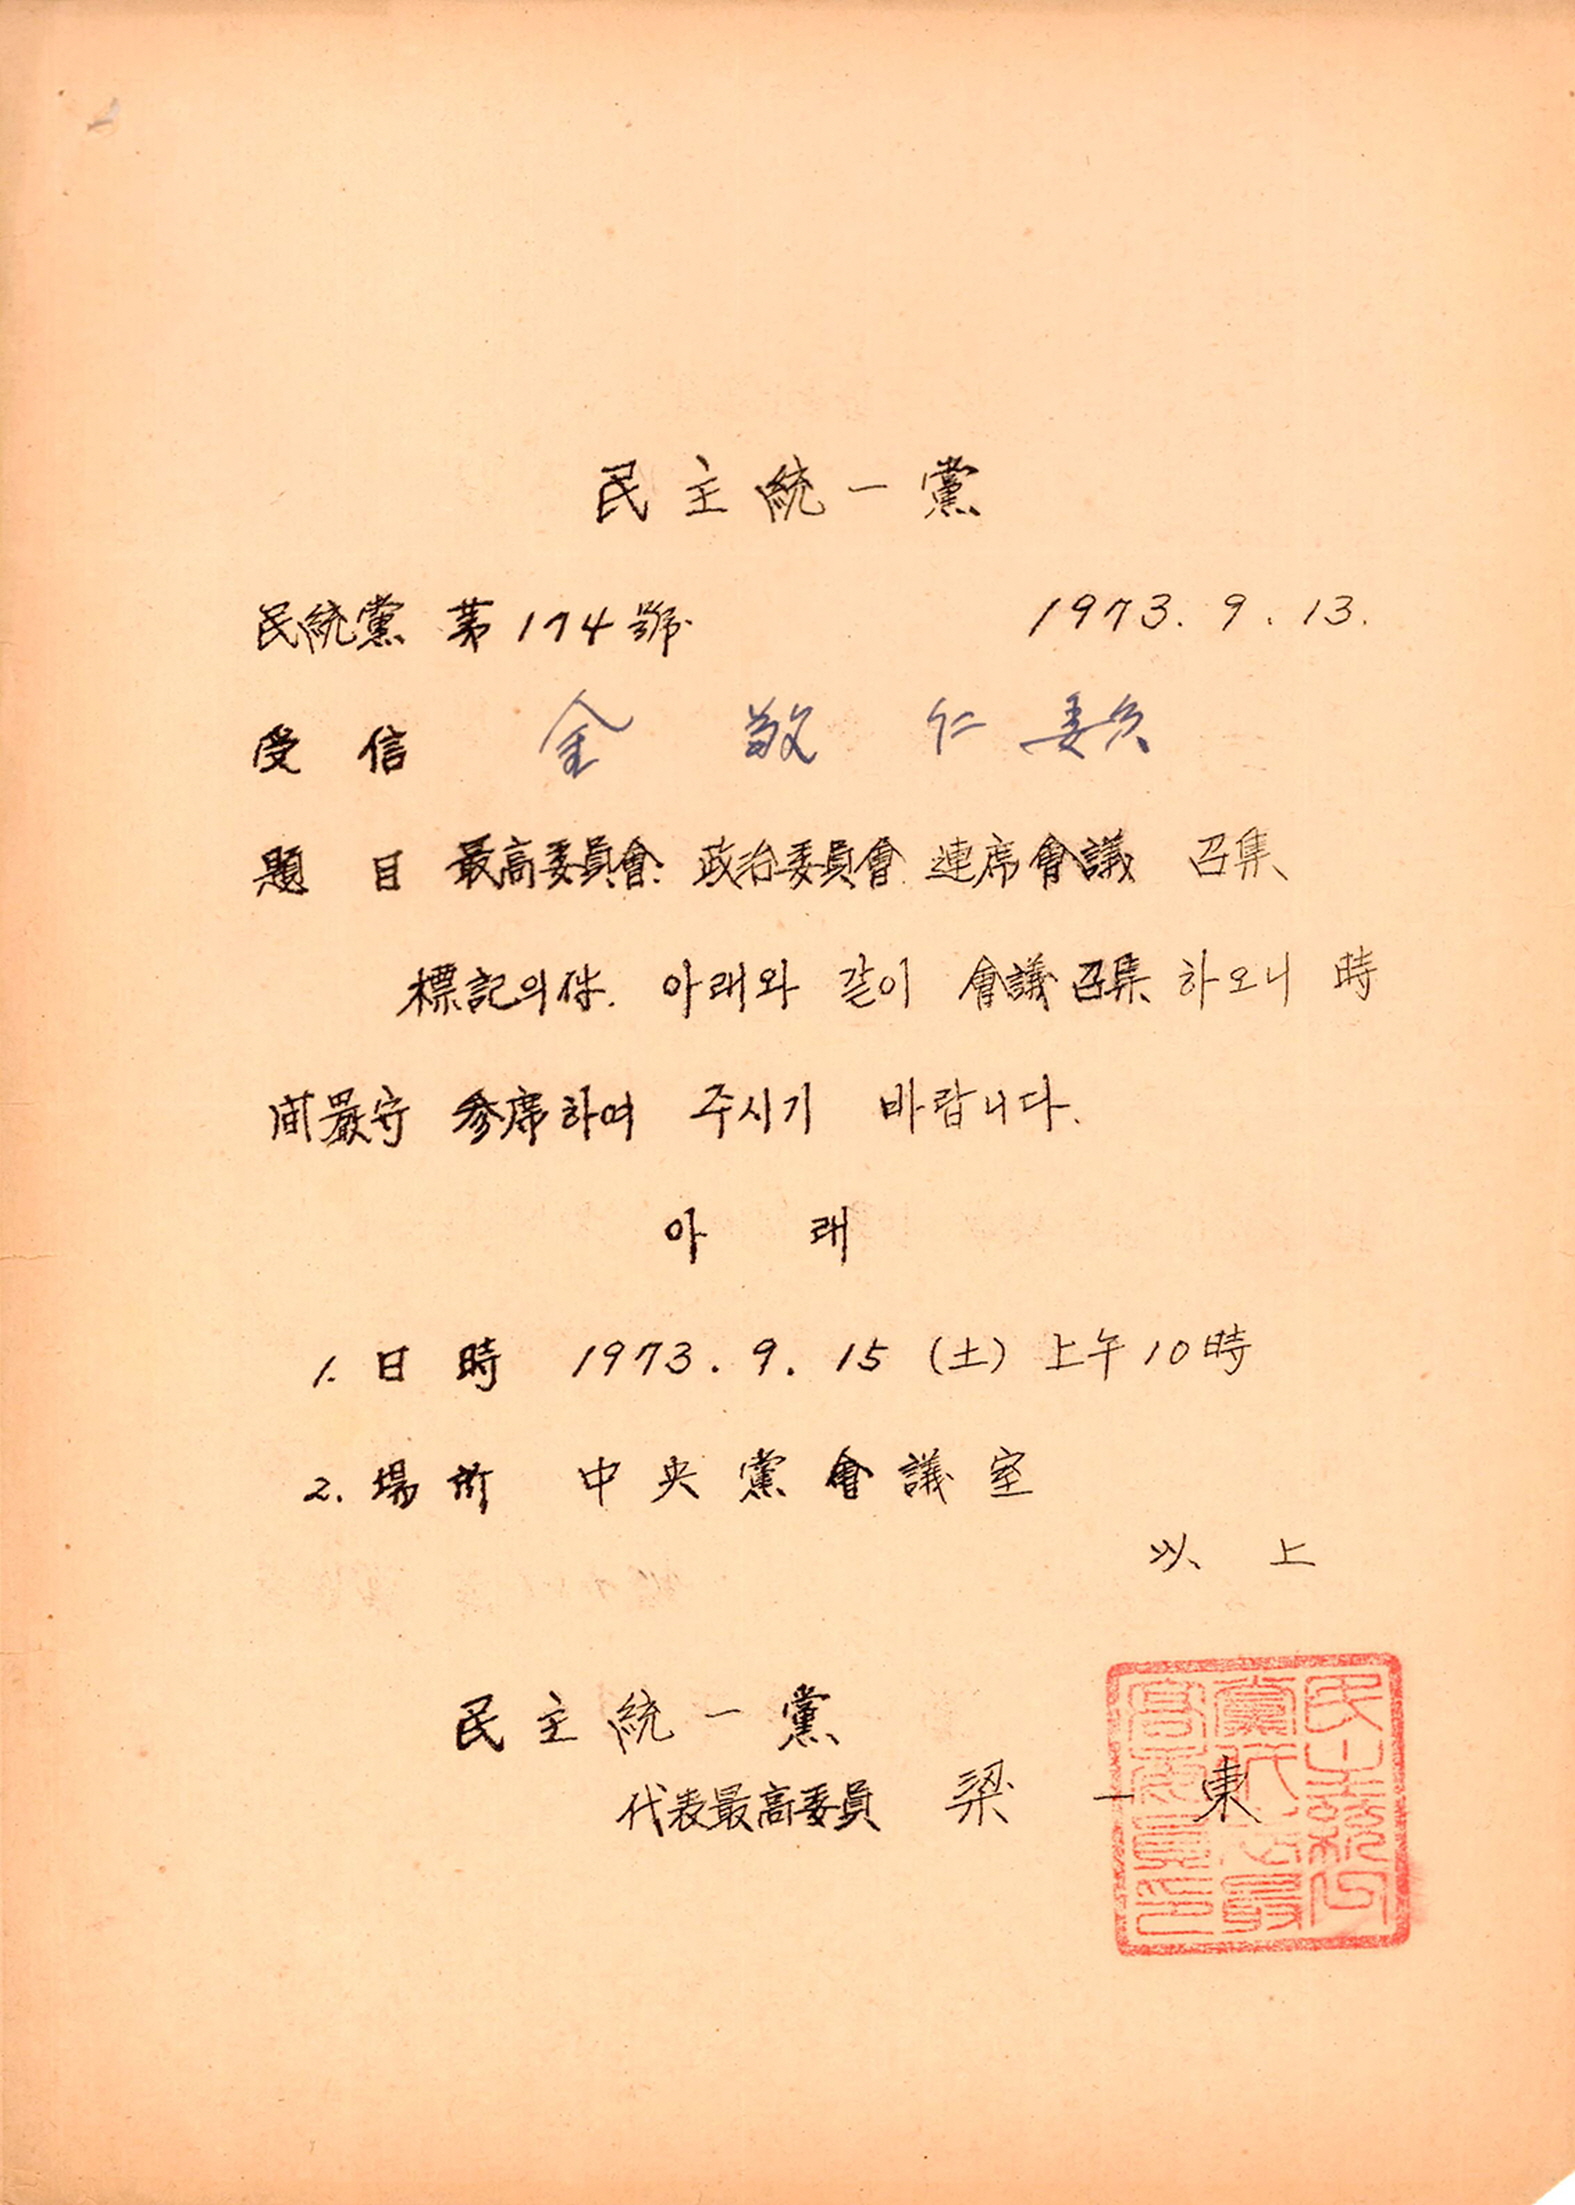 民主統一黨
民統黨 第174號 1973. 9. 13.
受信 金敬仁委員
題目 最高委員會. 政治委員會 連席會議 召集
標記의件. 아래와 같이 會議召集하오니 時
間嚴守 參席하여 주시기 바랍니다.
아래
1. 日時 1973. 9. 15 (土) 上午10時
2. 場所 中央黨會議室
以上
民主統一黨
代表最高委員 梁一東
民主統一
黨代表最
高委員印